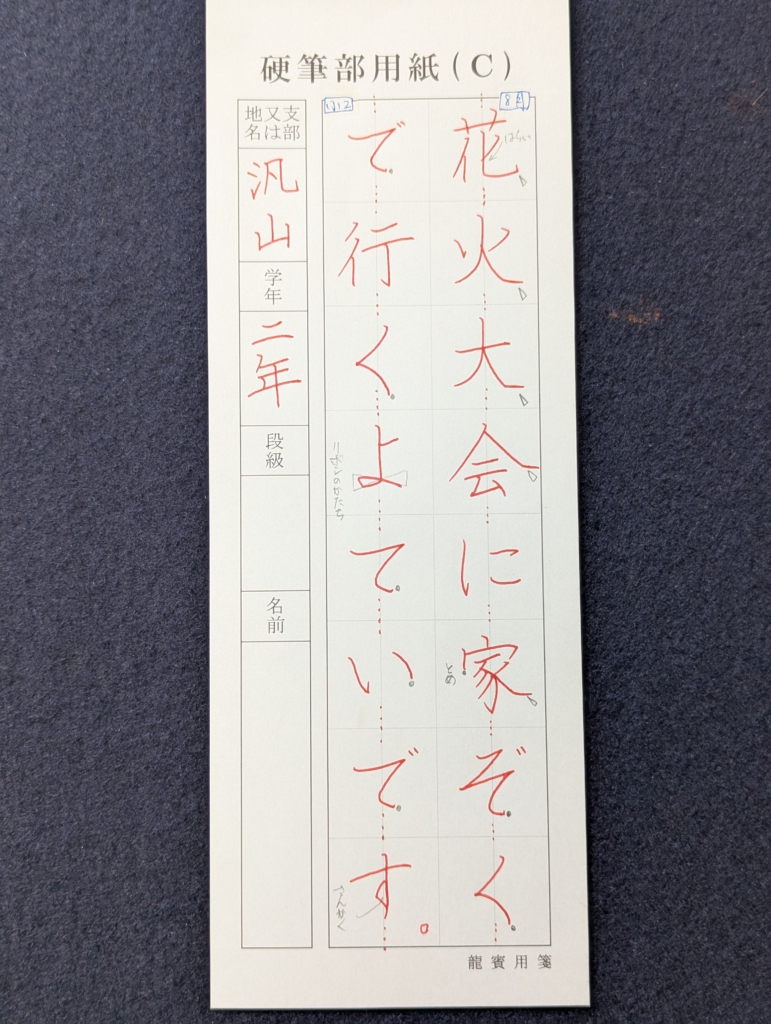 硬筆部用紙(C)
8月
花火大会に家ぞく
はらい
とめ
で行くよていです。
リボンのかたち
さんかく
支部又は地名
汎山
学年
二年
段級
名前
龍賓用箋